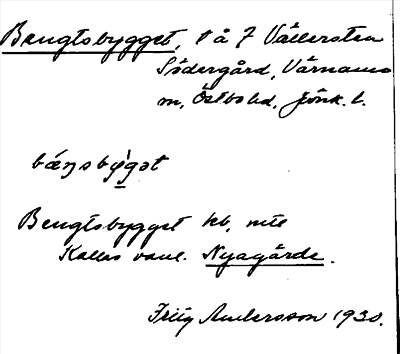 Bengtsbygget, t å 7 Vällersten
Södergård, Värnamo
sn, Östbo hd, Jönk. l.
bæŋsbygət
Bengtsbygget hb, nu
Kallas vanl. Nyagärde.
Friig Andersson 1930.